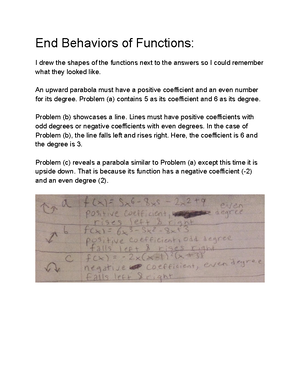 End Behaviors of Functions:
I drew the shapes of the functions next to the answers so I could remember
what they looked like.
An upward parabola must have a positive coefficient and an even number
for its degree. Problem (a) contains 5 as its coefficient and 6 as its degree.
Problem (b) showcases a line. Lines must have positive coefficients with
odd degrees or negative coefficients with even degrees. In the case of
Problem (b), the line falls left and rises right. Here, the coefficient is 6 and
the degree is 3.
Problem (c) reveals a parabola similar to Problem (a) except this time it is
upside down. That is because its function has a negative coefficient (-2)
and an even degree (2).
a
even
positive coefficient, degree
rises left & right
b
positive coefficient, odd degree
falls left & rises right
c
negative coefficient, even degree
falls left & right